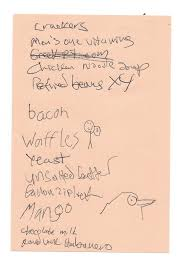 crackers
Men's one vitamins
Chicken noodle soup
Refried beans x4
bacon
Waffles
Yeast
unsalted butter
Gallon ziplock
Mango
chocolate milk